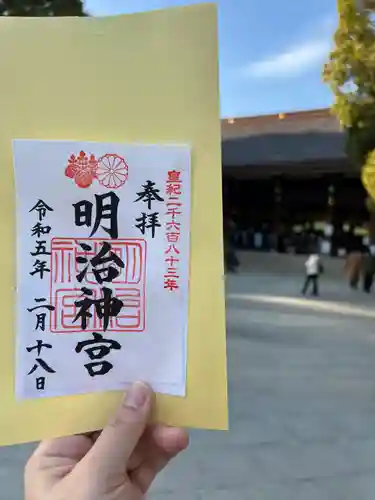 皇紀二千六百八十三年
奉拝
明治神宮
明治神宮
令和五年 二月十八日